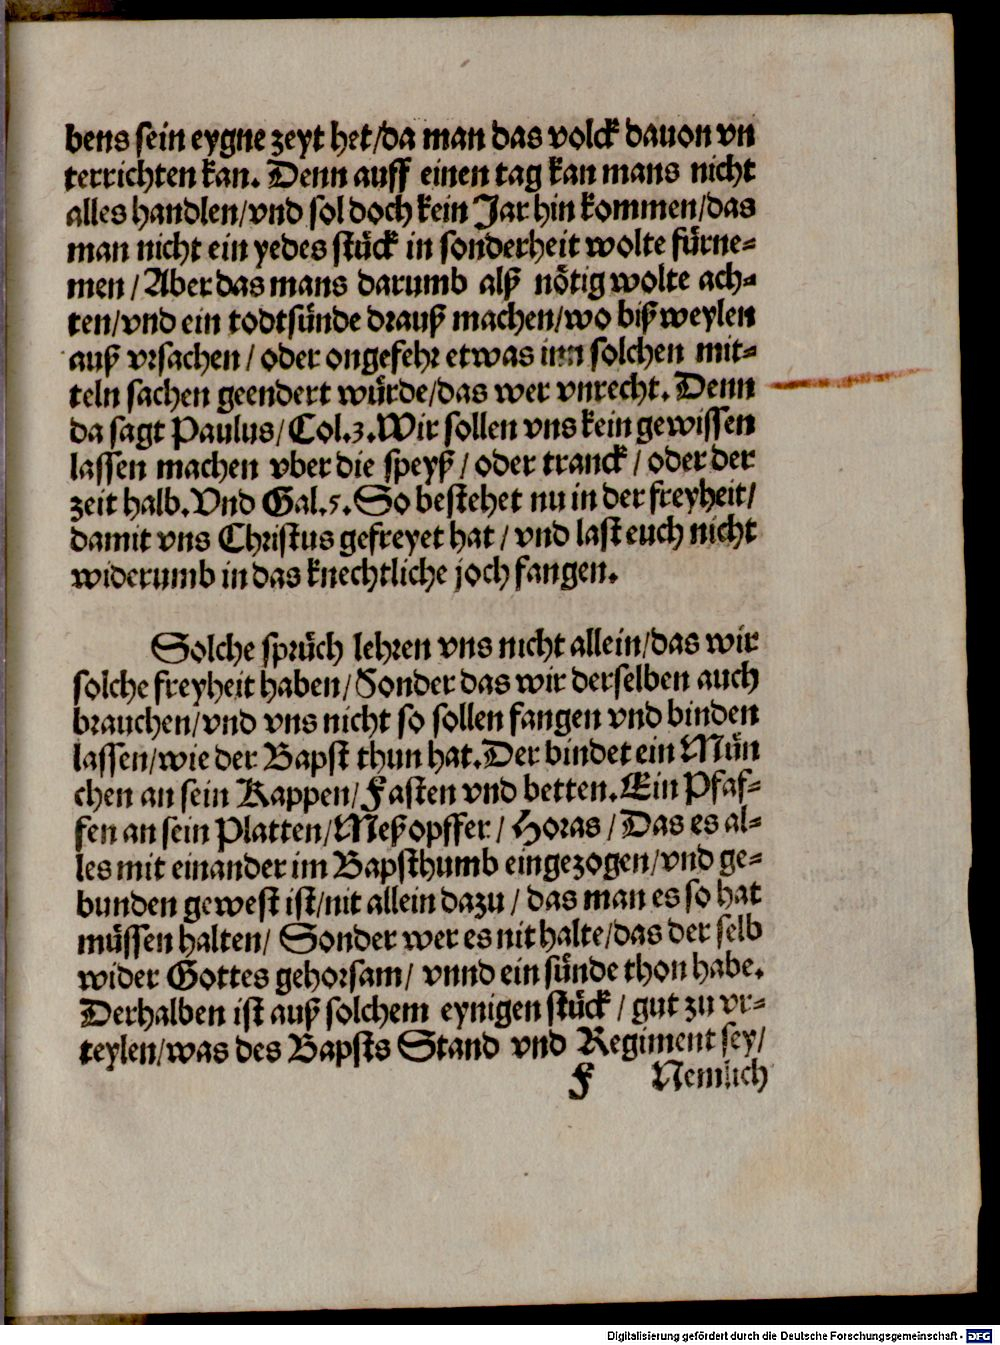 bens sein eygne zeyt het/da man das volck dauon vn
terrichten kan. Denn auff einen tag kan mans nicht
alles handlen/vnd sol doch kein Jar hin kommen/das
man nicht ein yedes stück in sonderheit wolte fürne⸗
men / Aber das mans darumb alß nötig wolte ach⸗
ten/vnd ein todtsünde drauß machen/wo bißweylen
auß vrsachen / oder ongefehr etwas inn solchen mit⸗
teln sachen geendert würde/das wer vnrecht. Denn
da sagt Paulus/ Col.3. Wir sollen vns kein gewissen
lassen machen vber die speyß / oder tranck / oder der
zeit halb. Vnd Gal.5. So bestehet nu in der freyheit/
damit vns Christus gefreyet hat / vnd last euch nicht
widerumb in das knechtliche joch fangen.
Solche sprüch lehren vns nicht allein/das wir
solche freyheit haben/ Sonder das wir derselben auch
brauchen/vnd vns nicht so sollen fangen vnd binden
lassen/wie der Bapst thun hat. Der bindet ein Mün
chen an sein Kappen/ Fasten vnd betten. Ein Pfaf⸗
fen an sein Platten/Meßopffer/ Horas / Das es al⸗
les mit einander im Bapsthumb eingezogen/vnd ge⸗
bunden gewest ist/nit allein dazu / das man es so hat
müssen halten/ Sonder wer es nit halte/das der selb
wider Gottes gehorsam/ vnnd ein sünde thon habe.
Derhalben ist auß solchem eynigen stück / gut zu vr⸗
teylen/was des Bapsts Stand vnd Regiment sey/
F Nemlich
Digitalisierung gefördert durch die Deutsche Forschungsgemeinschaft - DFG